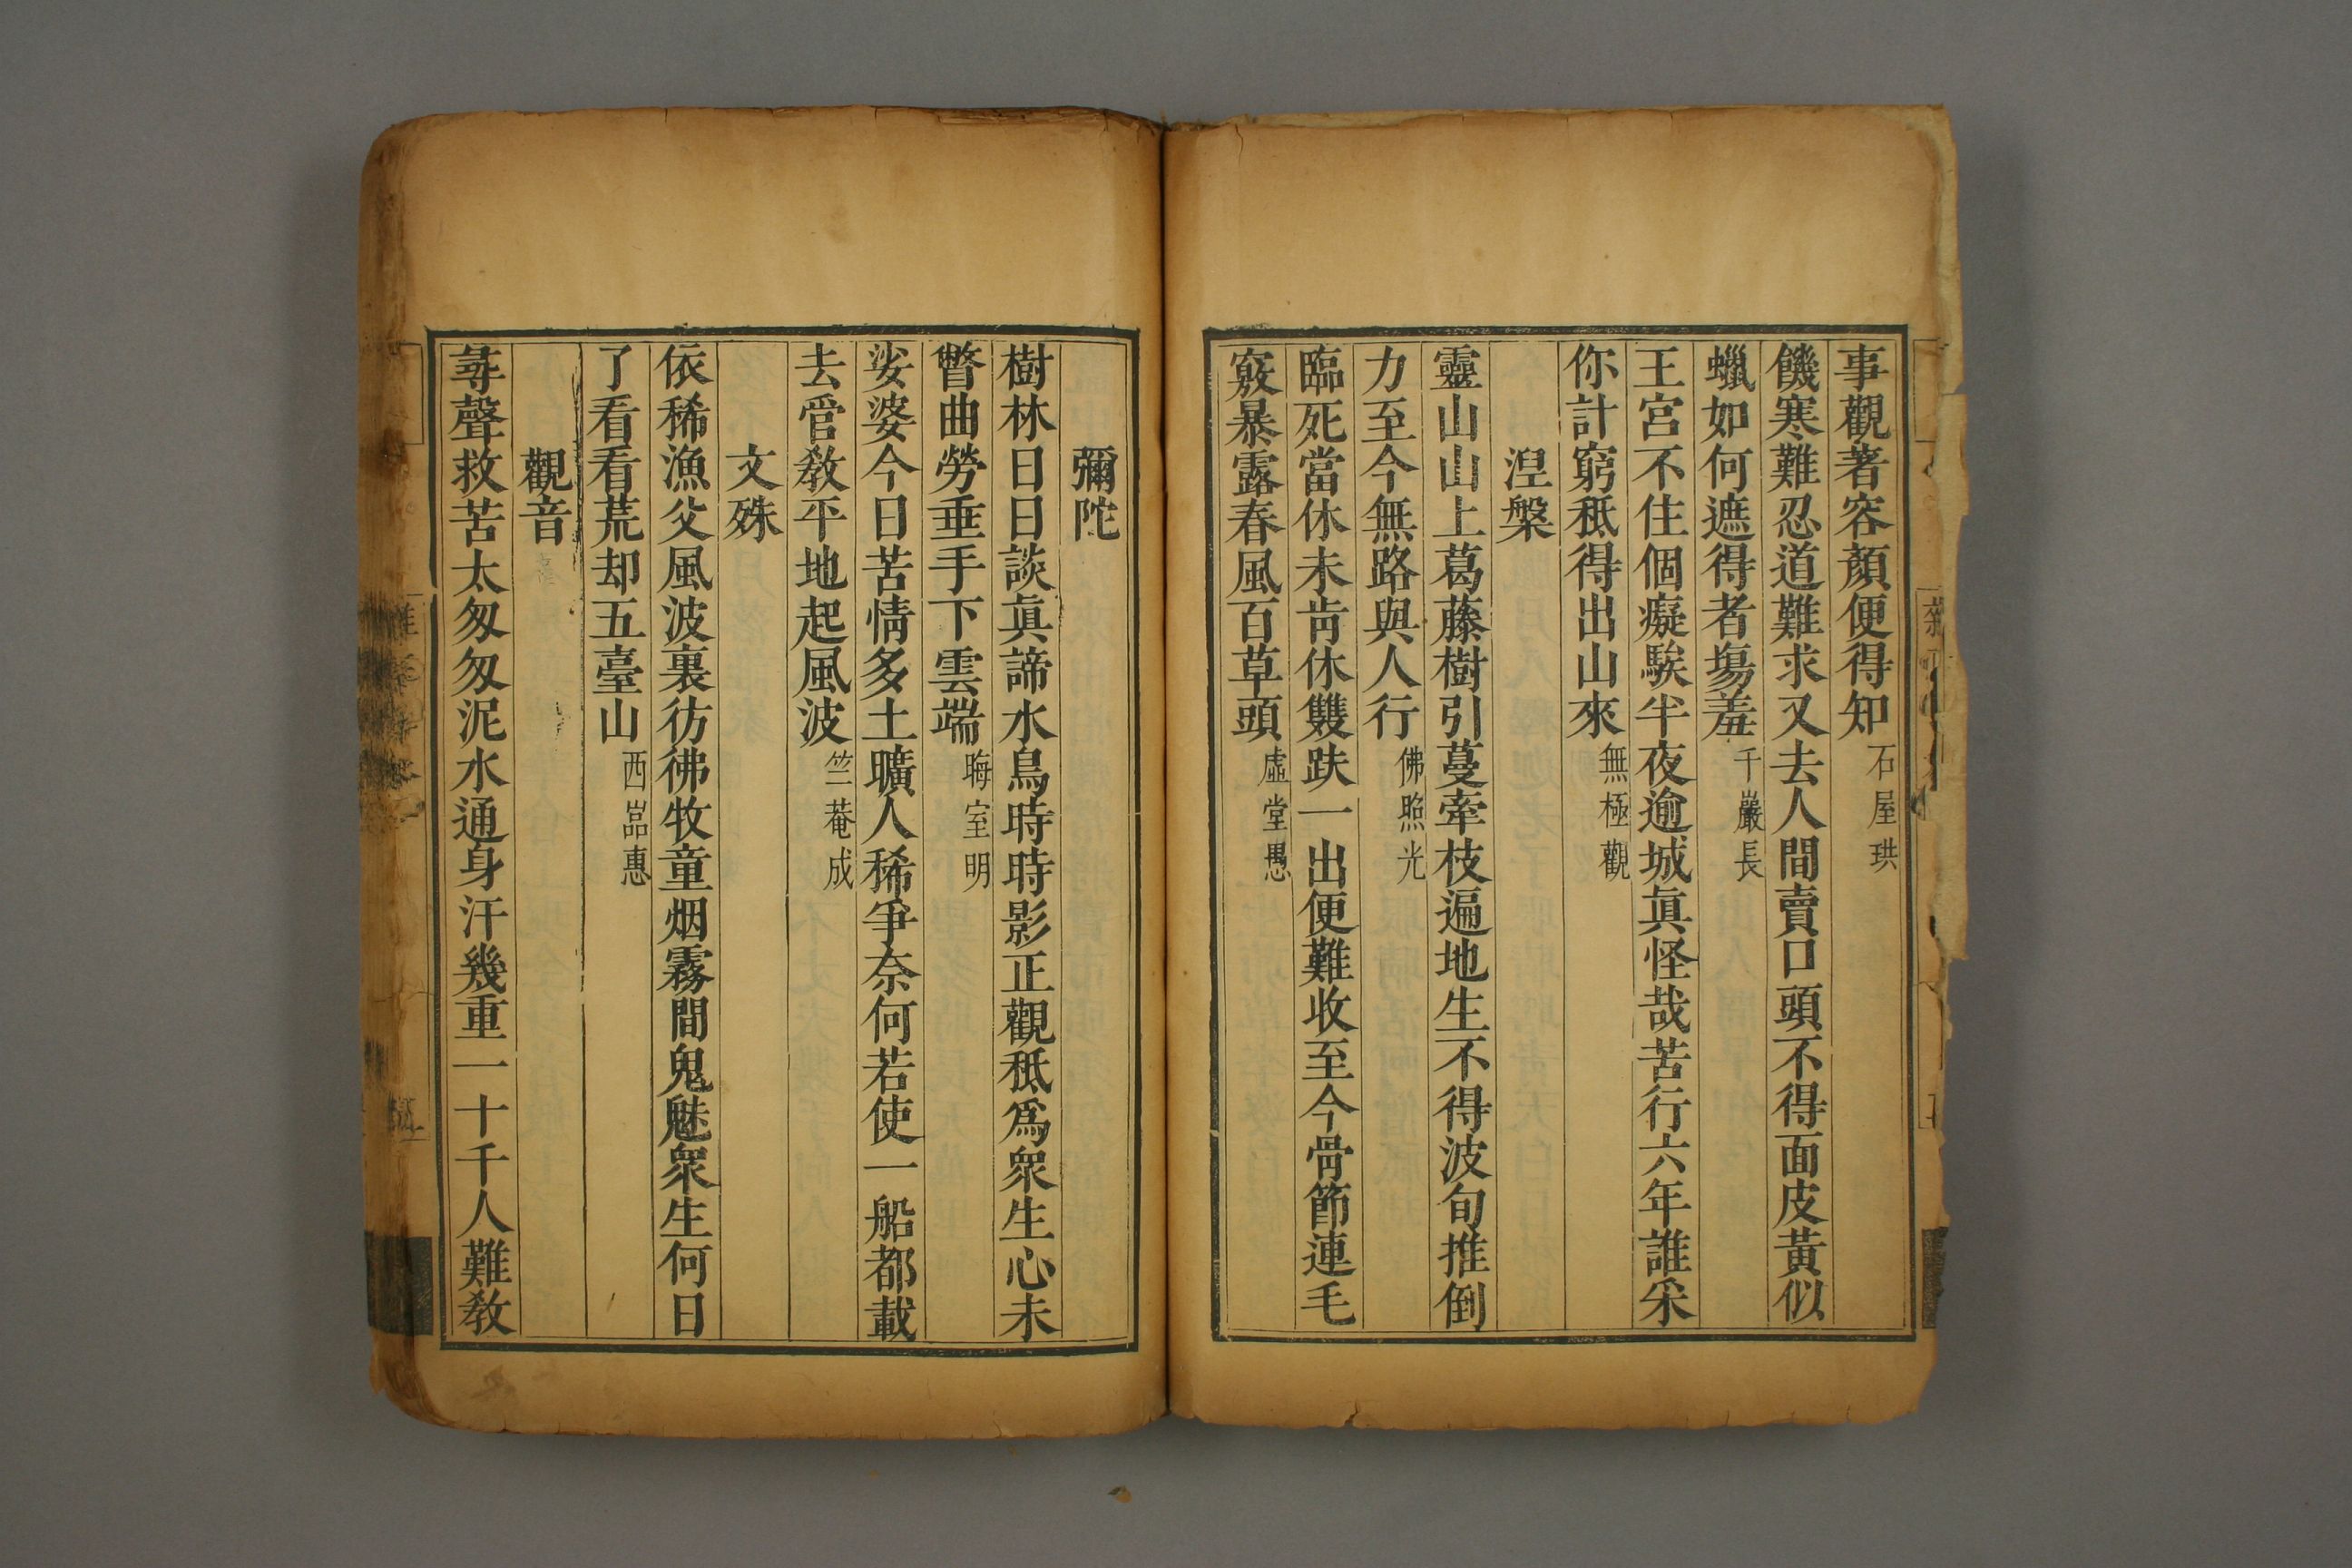 事觀著容顏便得知石屋珙
饑寒難忍道難求又去人間賣口頭不得面皮黃似
蠟如何遮得者塲羞千巖長
王宮不住個癡騃半夜逾城眞怪哉苦行六年誰采
你計窮秪得出山來無極觀
湼槃
靈山山上葛藤樹引蔓牽枝遍地生不得波旬推倒
力至今無路與人行佛照光
臨死當休未肯休雙趺一出便難收至今骨節連毛
竅暴露春風百草頭虛堂愚
彌陀
樹林日日談眞諦水鳥時時影正觀秪爲衆生心未
瞥曲勞垂手下雲端晦室明
娑婆今日苦情多土曠人稀爭奈何若使一船都載
去管敎平地起風波竺菴成
文殊
依稀漁父風波裏彷彿牧童烟霧間鬼魅衆生何日
了看看荒却五臺山西嵓惠
觀音
尋聲救苦太匆匆泥水通身汗幾重一十千人難敎